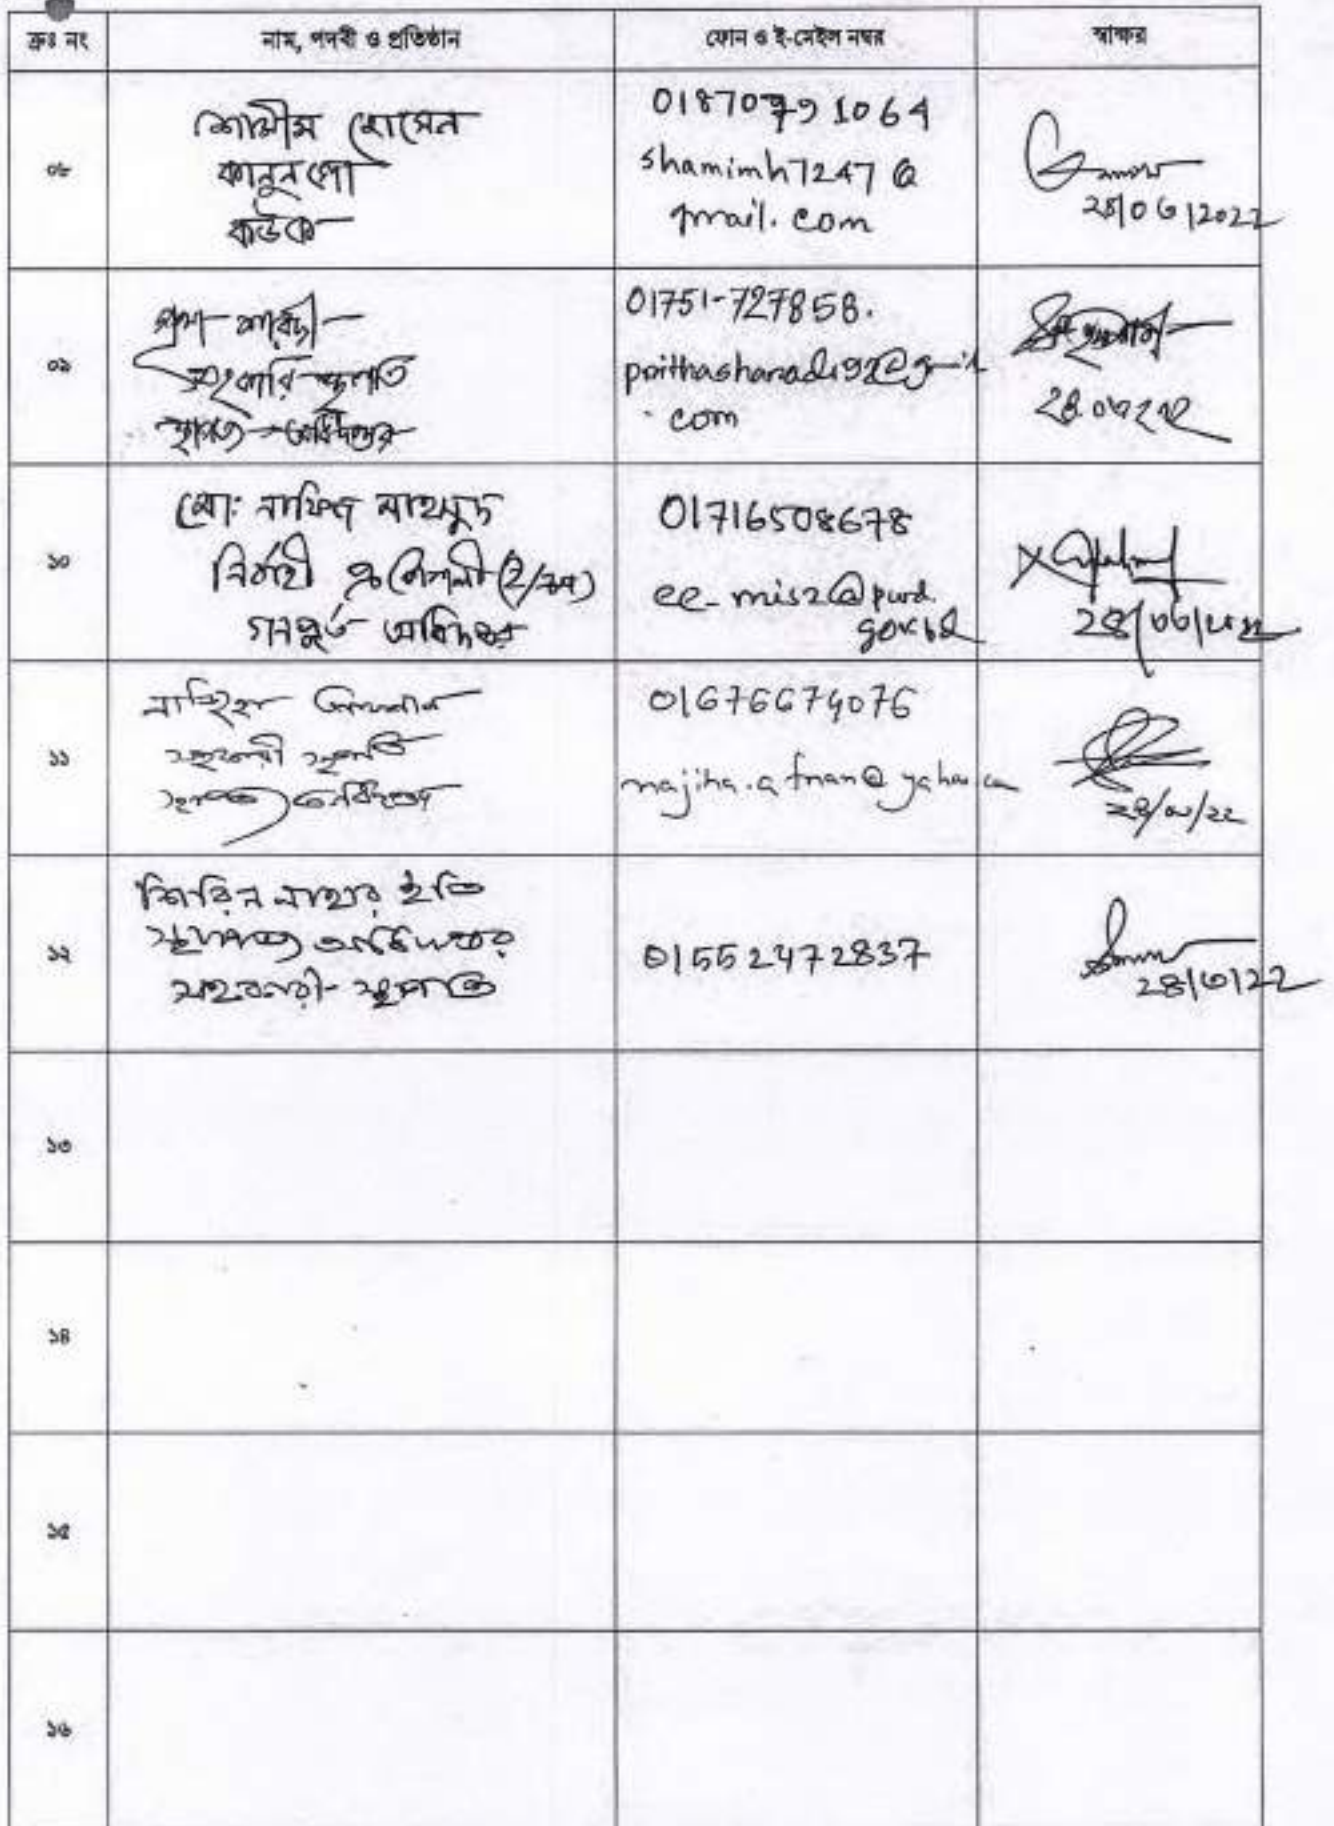 ক্রঃ নং নাম, পদবী ও প্রতিষ্ঠান ফোন ও ই-মেইল নম্বর স্বাক্ষর
০৮
শামীম হোসেন
কানুনগো
কউক
01870791064
shamimh7247@
gmail.com
28/06/2022
০৯
সহকারি স্থপতি
স্থাপত্য অধিদপ্তর
01751-727858.
.com
১০
মো: নাফিজ মাহমুদ
নির্বাহী প্রকৌশলী
গনপূর্ত অধিদপ্তর
01716508678
ee_mis2@pwd.
gov.bd
28/06/2022
১১
নাজিহা আফনান
সহকারী স্থপতি
স্থাপত্য অধিদপ্তর
01676674076
28/06/22
১২
শিরিন নাহার ইতি
স্থাপত্য অধিদপ্তর
সহকারী স্থপতি
01552472837
28/6/22
১৩
১৪
১৫
১৬